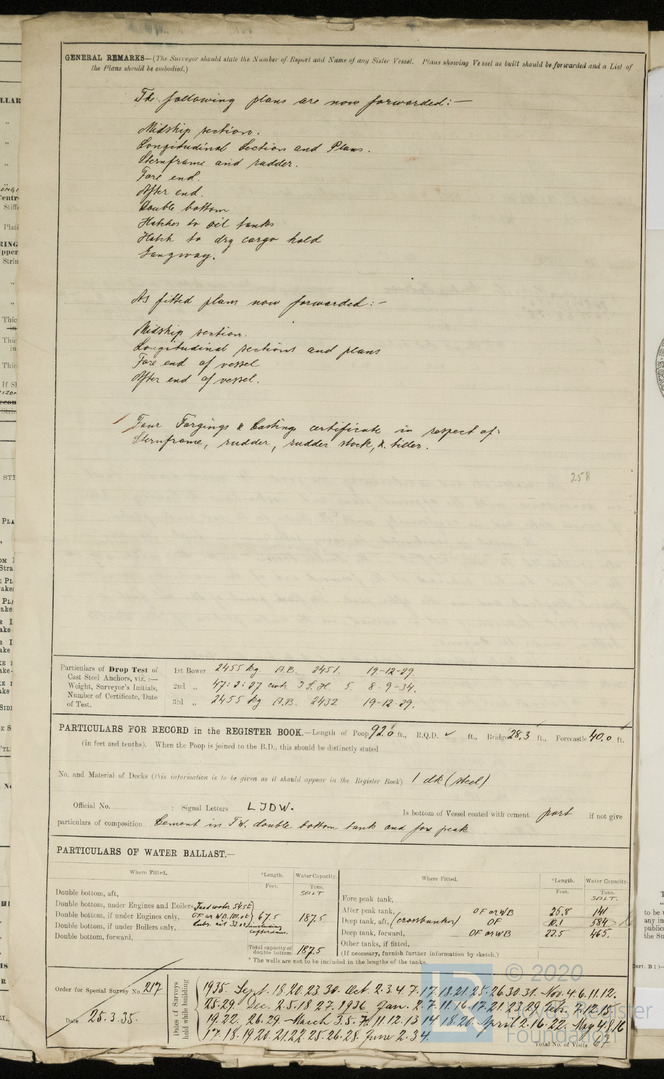 GENERAL REMARKS—(The Surveyor should state the Number of Report and Name of any Sister Vessel. Plans showing Vessel as built should be forwarded and a List of
the Plans should be embodied.)
The following plans are now forwarded:—
Midship section.
Longitudinal Sections and Plans.
Sternframe and rudder.
Fore end.
After end.
Double bottom
Hatches to oil tanks
Hatch to dry cargo hold
Gangway.
As fitted plans now forwarded:—
Midship section.
Longitudinal sections and plans
Fore end of vessel
After end of vessel.
Four Forgings & Casting certificate in respect of:
Sternframe, rudder, rudder stock, & tiller.
258
Particulars of Drop Test of
Cast Steel Anchors, viz.:—
Weight, Surveyor's Initials,
Number of Certificate, Date
of Test.
1st Bower 2455 kg A.B. 2451. 19-12-29
2nd „ 47: 2: 27 cwt J.S.H. 5. 8-9-34.
3rd „ 2455 kg A.B. 2432 19-12-29.
PARTICULARS FOR RECORD in the REGISTER BOOK.—Length of Poop 92.0 ft., R.Q.D. ✓ ft., Bridge 28.3 ft., Forecastle 40.0 ft.
(in feet and tenths). When the Poop is joined to the B.D., this should be distinctly stated
No. and Material of Decks (this information is to be given as it should appear in the Register Book) 1 dk (steel)
Official No. : Signal Letters LJDW. Is bottom of Vessel coated with cement part if not give
particulars of composition Cement in F.W. double bottom tank and fore peak
PARTICULARS OF WATER BALLAST.—
Where Fitted. *Length. Water Capacity.
Feet. Tons. SALT
Double bottom, aft,
Double bottom, under Engines and Boilers,
Double bottom, if under Engines only, 67.5 187.5
Double bottom, if under Boilers only,
Double bottom, forward,
Total capacity of double bottom 187.5
Where Fitted. *Length. Water Capacity.
Feet. Tons. SALT.
Fore peak tank,
After peak tank, OF or WB 25.8 141
Deep tank, aft, (crossbunker) OF 10.1 584
Deep tank, forward, OF or WB 22.5 465.
Other tanks, if fitted,
(If necessary, furnish further information by sketch.)
* The wells are not to be included in the lengths of the tanks.
Order for Special Survey No. 217
Date 25.3.35.
Dates of Surveys held while building
1935. Sept. 18.20.23.30. Oct. 2.3.4.7.17.18.21.25.26.30.31. Nov. 4.6.11.12.
25.29. Dec. 2.5.18.27. 1936. Jan. 2.7.11.16.17.21.23.29. Feb. 7.12.18
19.22. 26.29. March 3.5.7.11.12.13 14 18.20. April 2.16.22. May 4.8.16
17.18.19.20.21.22.25.26.28. June 2.3.4.
Total No. of Visits 67
© 2020
Lloyd's Register
Foundation